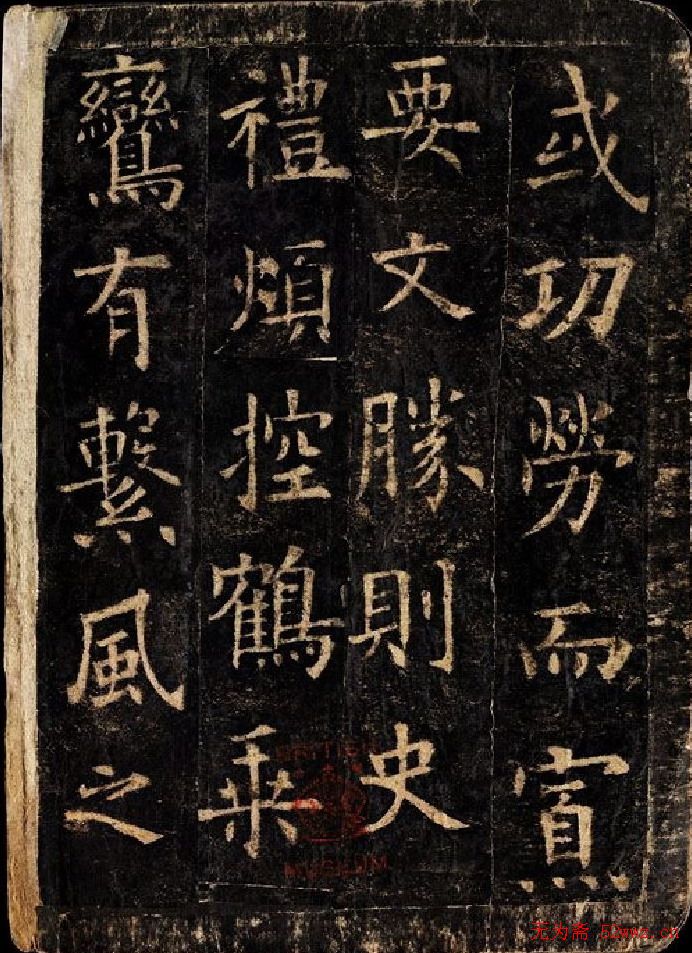 或功勞而寡
要文勝則史
禮煩控鶴乘
鸞有繫風之
BRITISH
MUSEUM
无为斋